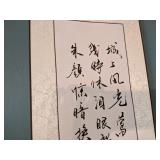 城上风光莺
幾時休泪眼
朱颜惊暗换